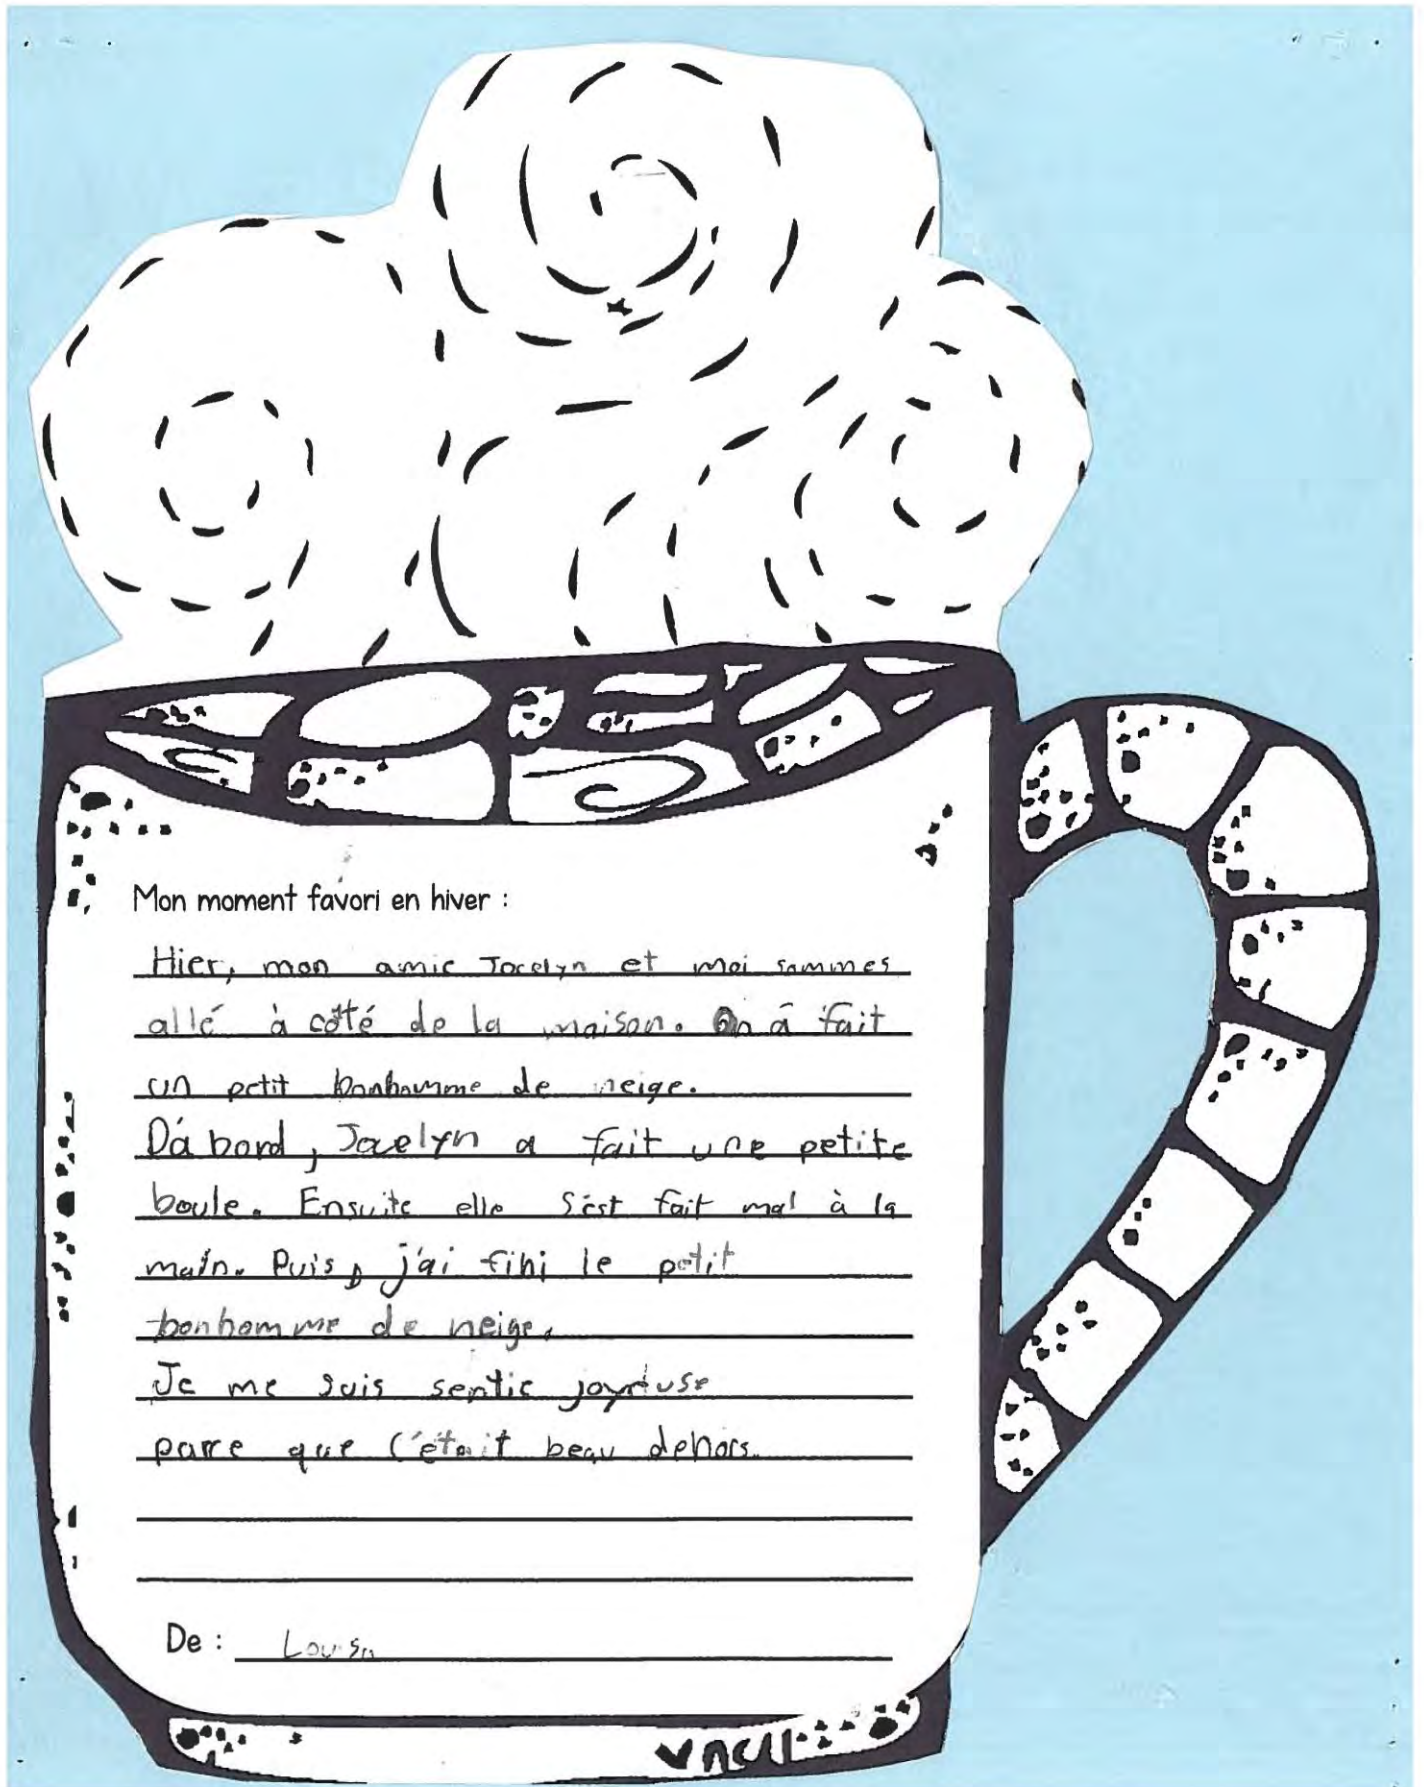 Mon moment favori en hiver :
Hier, mon amie Jocelyn et moi sommes
allé à côté de la maison. On a fait
un petit bonhomme de neige.
D'abord, Jocelyn a fait une petite
boule. Ensuite elle s'est fait mal à la
main. Puis, j'ai fini le petit
bonhomme de neige.
Je me suis sentie joyeuse
parce que c'était beau dehors.
De : Louisa